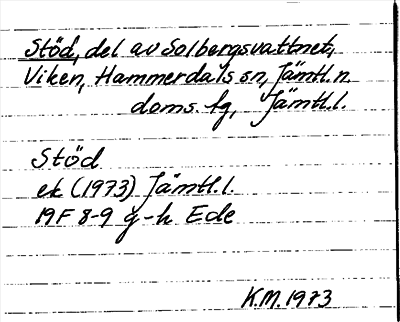 Stöd, del av Solbergsvattnet,
Viken, Hammerdals sn, Jämtl. n.
doms. fg, Jämtl. l.
Stöd
ek (1973) Jämtl. l.
19F 8-9 g-h Ede
K.M. 1973